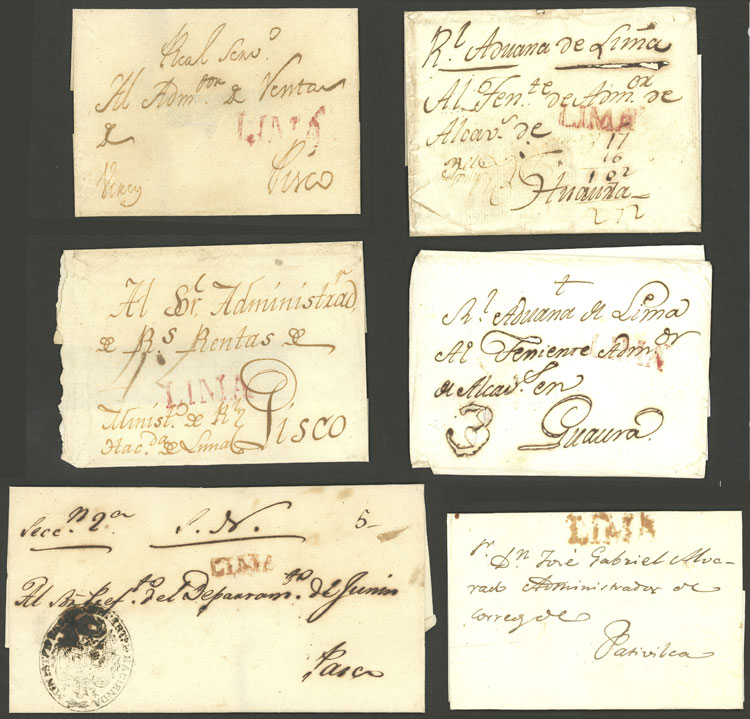 Real Serv.º
Al Adm.ᵒʳ de Rentas
de
LIMA
Pisco
R.ˡ Aduana de Lima
Al Ten.ᵗᵉ de Adm.ᵒʳ de
Alcav.ˢ de
LIMA
17
16
102
Huaura
272
Al Sr. Administrad.ʳ
de R.ˢ Rentas de
LIMA
Pisco
Minist.º de R.ˡ
Hac.ᵈᵃ de Lima
R.ˡ Aduana de Lima
Al Teniente Adm.ᵒʳ
LIMA
de Alcav.ˢ en
3
Guaura
Secc.ⁿ 2.ª
S. N.
5
LIMA
Al Sr. Pref.ᵗᵒ del Departam.ᵗᵒ de Junin
HACIENDA
Pasco
LIMA
Dn José Gabriel Alva-
rado Administrador de
correos de
Pativilca